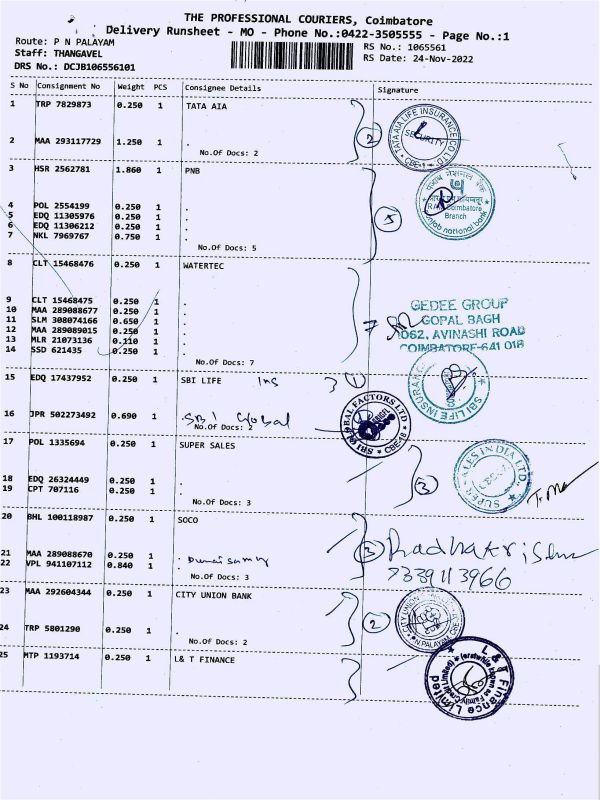 THE PROFESSIONAL COURIERS, Coimbatore
Delivery Runsheet - MO - Phone No.:0422-3505555 - Page No.:1
Route: P N PALAYAM RS No.: 1065561
Staff: THANGAVEL RS Date: 24-Nov-2022
DRS No.: DCJB106556101
S No Consignment No Weight PCS Consignee Details Signature
1 TRP 7829873 0.250 1 TATA AIA
2 MAA 293117729 1.250 1 .
No.Of Docs: 2
2
TATA AIA LIFE INSURANCE CO LTD
SECURITY
CBE-18
3 HSR 2562781 1.860 1 PNB
4 POL 2554199 0.250 1 .
5 EDQ 11305976 0.250 1 .
6 EDQ 11306212 0.250 1 .
7 NKL 7969767 0.750 1 .
No.Of Docs: 5
5
पंजाब नैशनल बैंक
Coimbatore
Branch
punjab national bank
8 CLT 15468476 0.250 1 WATERTEC
9 CLT 15468475 0.250 1 .
10 MAA 289088677 0.250 1 .
11 SLM 308074166 0.650 1 .
12 MAA 289089015 0.250 1 .
13 MLR 21073136 0.110 1 .
14 SSD 621435 0.250 1 .
No.Of Docs: 7
7
GEDEE GROUP
GOPAL BAGH
1062, AVINASHI ROAD
COIMBATORE-641 018
15 EDQ 17437952 0.250 1 SBI LIFE Ins
1
SBI LIFE INSURANCE
16 JPR 502273492 0.690 1 SBI Global
No.Of Docs: 2
SBI GLOBAL FACTORS LTD
CBE-18
17 POL 1335694 0.250 1 SUPER SALES
18 EDQ 26324449 0.250 1 .
19 CPT 707116 0.250 1 .
No.Of Docs: 3
3
SUPER SALES INDIA LTD
20 BHL 100118987 0.250 1 SOCO
21 MAA 289088670 0.250 1 . Duraisamy
22 VPL 941107112 0.840 1 .
No.Of Docs: 3
3
Radhakrishna
7339113966
23 MAA 292604344 0.250 1 CITY UNION BANK
24 TRP 5801290 0.250 1 .
No.Of Docs: 2
2
CITY UNION
25 MTP 1193714 0.250 1 L& T FINANCE
L & T Finance Limited
(erstwhile known as Family Credit Limited)